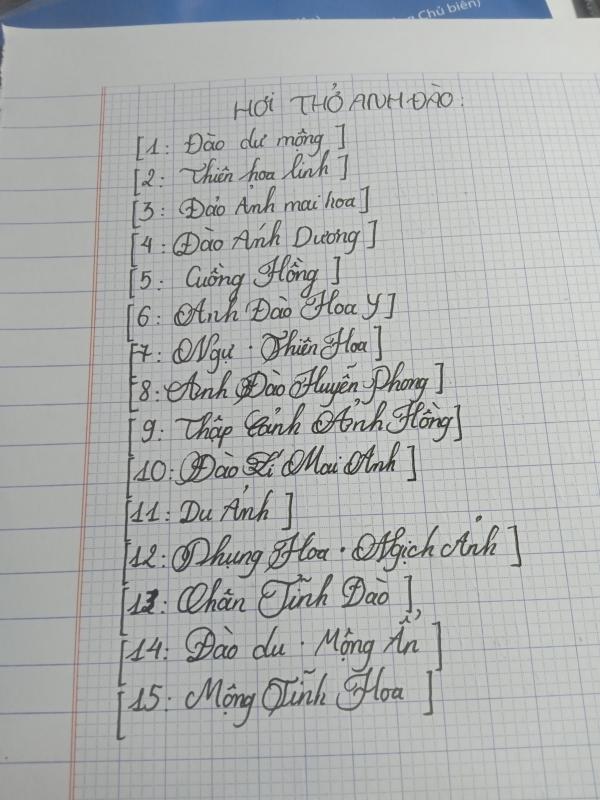 Chủ biên)
HƠI THỞ ANH ĐÀO:
[1: Đào dư mộng]
[2: Thiên hoa linh]
[3: Đảo Ảnh mai hoa]
[4: Đào Ánh Dương]
[5: Cuồng Hồng]
[6: Anh Đào Hoa Y]
[7: Ngự · Thiên Hoa]
[8: Anh Đào Huyễn Phong]
[9: Thập Cảnh Ảnh Hồng]
[10: Đào Mai Anh]
[11: Du Ảnh]
[12: Phụng Hoa · Nghịch Ảnh]
[13: Chân Tĩnh Đào]
[14: Đào du · Mộng Ẩn]
[15: Mộng Tĩnh Hoa]